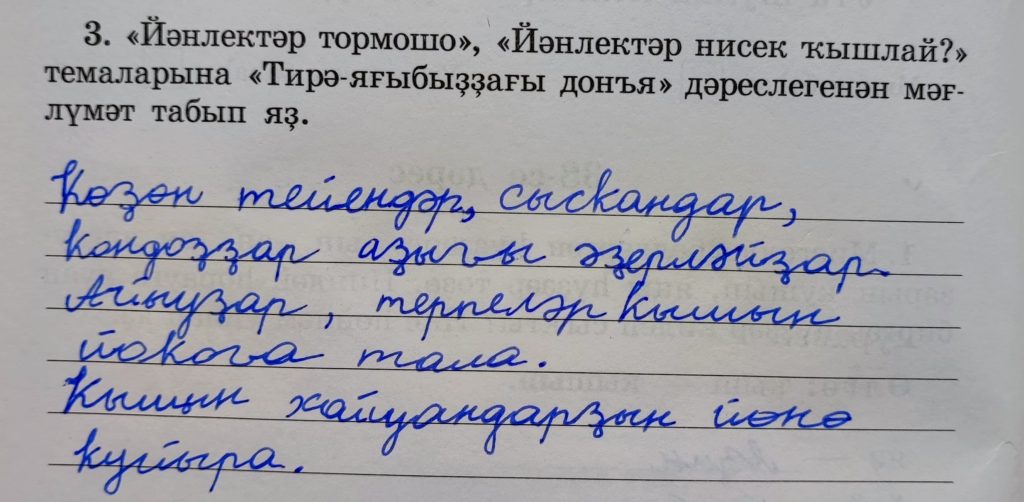 3. «Йәнлектәр тормошо», «Йәнлектәр нисек ҡышлай?»
темаларына «Тирә-яғыбыҙҙағы донъя» дәреслегенән мәғ-
лүмәт табып яҙ.
Көҙөн тейендәр, сысҡандар,
ҡондоҙҙар аҙығы әҙерләйҙәр.
Айыуҙар, терпеләр ҡышын
йоҡоға тала.
Ҡышын хайуандарҙын йөнө
ҡуйыра.